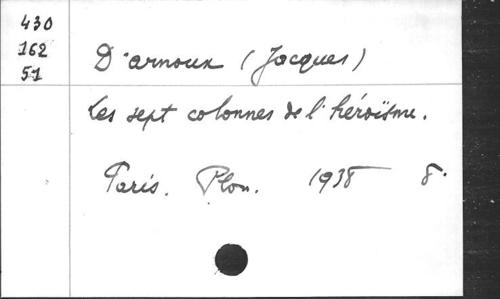 430
162
51
D'arnoux (Jacques)
Les sept colonnes de l'héroïsme.
Paris. Plon. 1938 8°